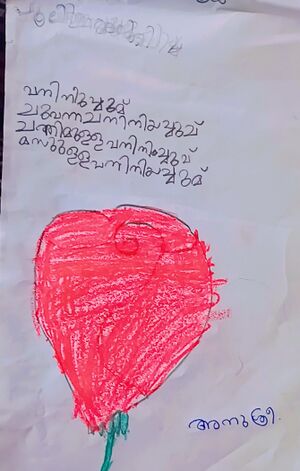 പനിനീപൂവ്
ചുവന്നപനിനീപൂവ്
ചന്തമുള്ളപനിനീപൂവ്
മണമുള്ളപനിനീപൂവ്
അനുശ്രീ.